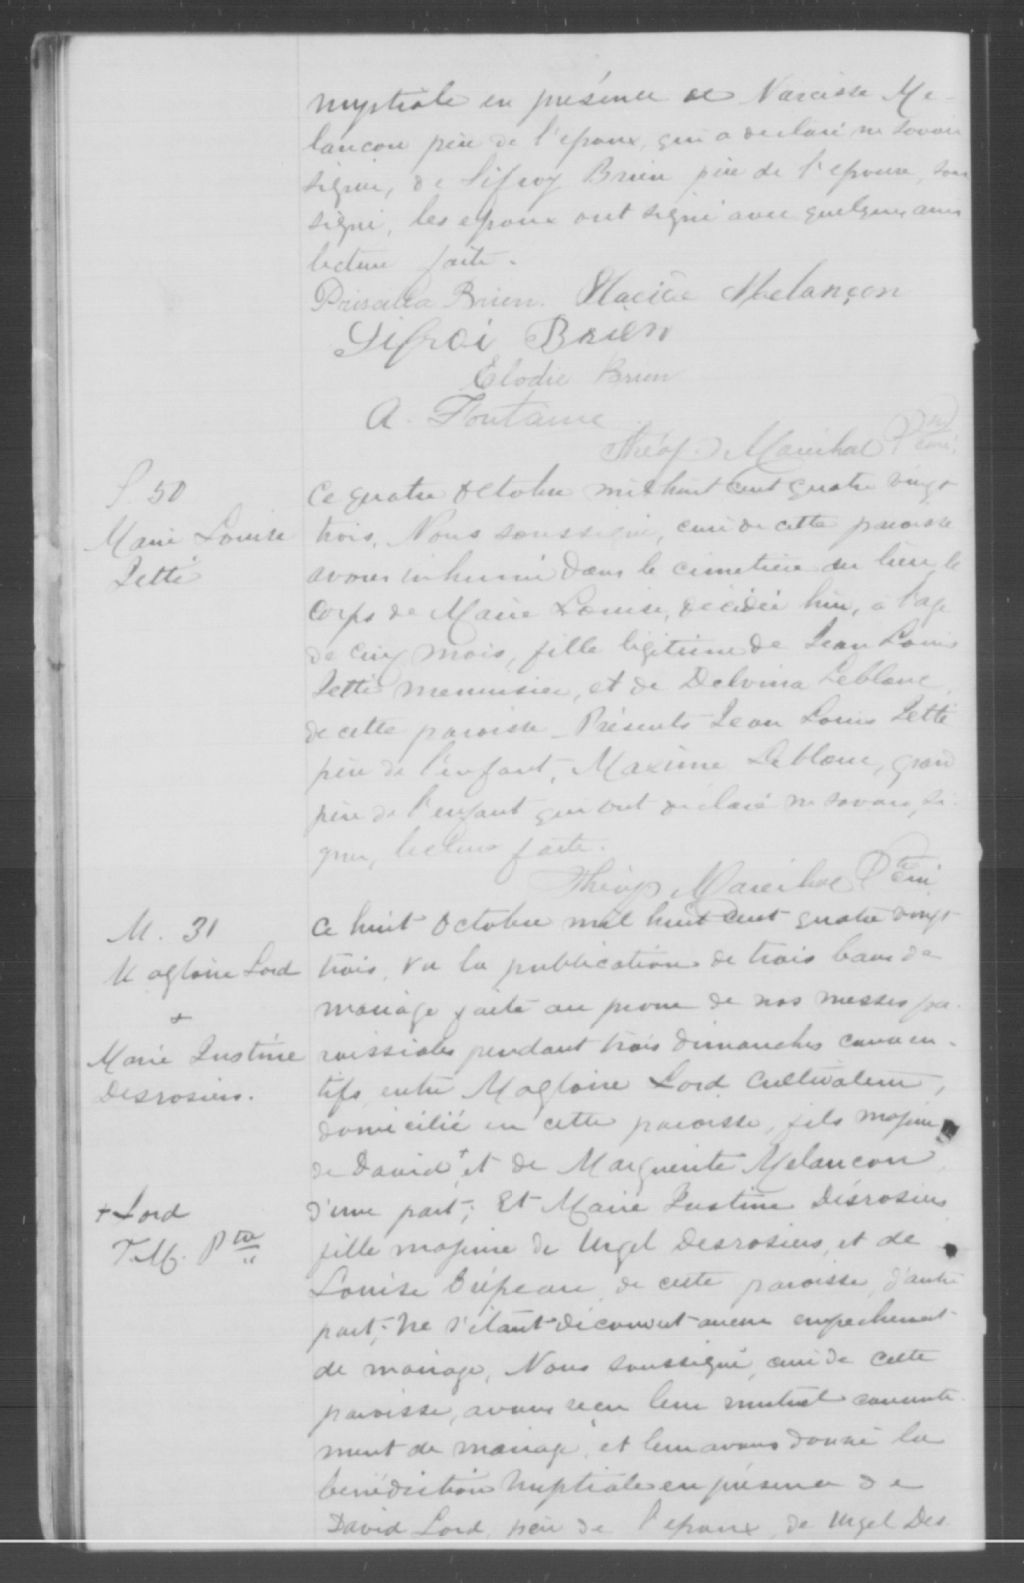 nuptiale en présence de Narcisse Me-
lançon père de l'epoux, qui a déclaré ne savoir
signer, de Sifroy Brien père de l'epouse, sous
signé, les epoux ont signé avec quelques amis
lecture faite.
Priscilla Brien. Melançon
Sifroi Brien
Elodie Brien
A. Fontaine
Théop. Maréchal Ptre curé.
S. 50
Marie Louise
Jetté
Ce quatre Octobre mil huit cent quatre vingt
trois, Nous soussigné, curé de cette paroisse
avons inhumé dans le cimetière du lieu, le
corps de Marie Louise, décédée hier, a l'age
de cinq mois, fille légitime de Jean Louis
Jetté menuisier, et de Delvina Leblanc,
de cette paroisse. Présents Jean Louis Jetté
père de l'enfant, Maxime Leblanc, grand
père de l'enfant qui ont déclaré ne savoir si-
gner, lecture faite.
Théop Maréchal Ptre Curé
M. 31
Magloire Lord
+
Marie Justine
Desrosiers.
Ce huit Octobre mil huit cent quatre vingt
trois, vu la publication de trois bans de
mariage faite au prone de nos messes pa-
roissiales pendant trois dimanches consécu-
tifs, entre Magloire Lord cultivateur,
domicilié en cette paroisse, fils majeur
de David + et de Marguerite Melançon,
d'une part; Et Marie Justine Désrosiers
+ Lord
T.M. Ptre
fille majeure de Urgel Desrosiers, et de
Louise de cette paroisse, d'autre
part; Ne s'étant découvert aucun empechement
de mariage, Nous soussigné, curé de cette
paroisse, avons reçu leur mutuel consente-
ment de mariage, et leur avons donné la
bénédiction nuptiale en présence de
David Lord, père de l'epoux, de Urgel Des